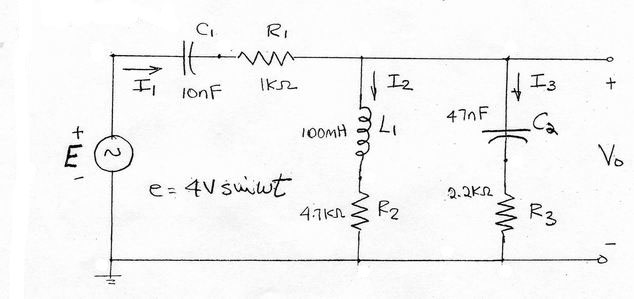 C1 R1
I1 10nF 1KΩ
I2 I3 +
100mH L1 47nF C2
+
E
-
Vo
e = 4V sin ωt
4.7KΩ R2 2.2KΩ R3
-